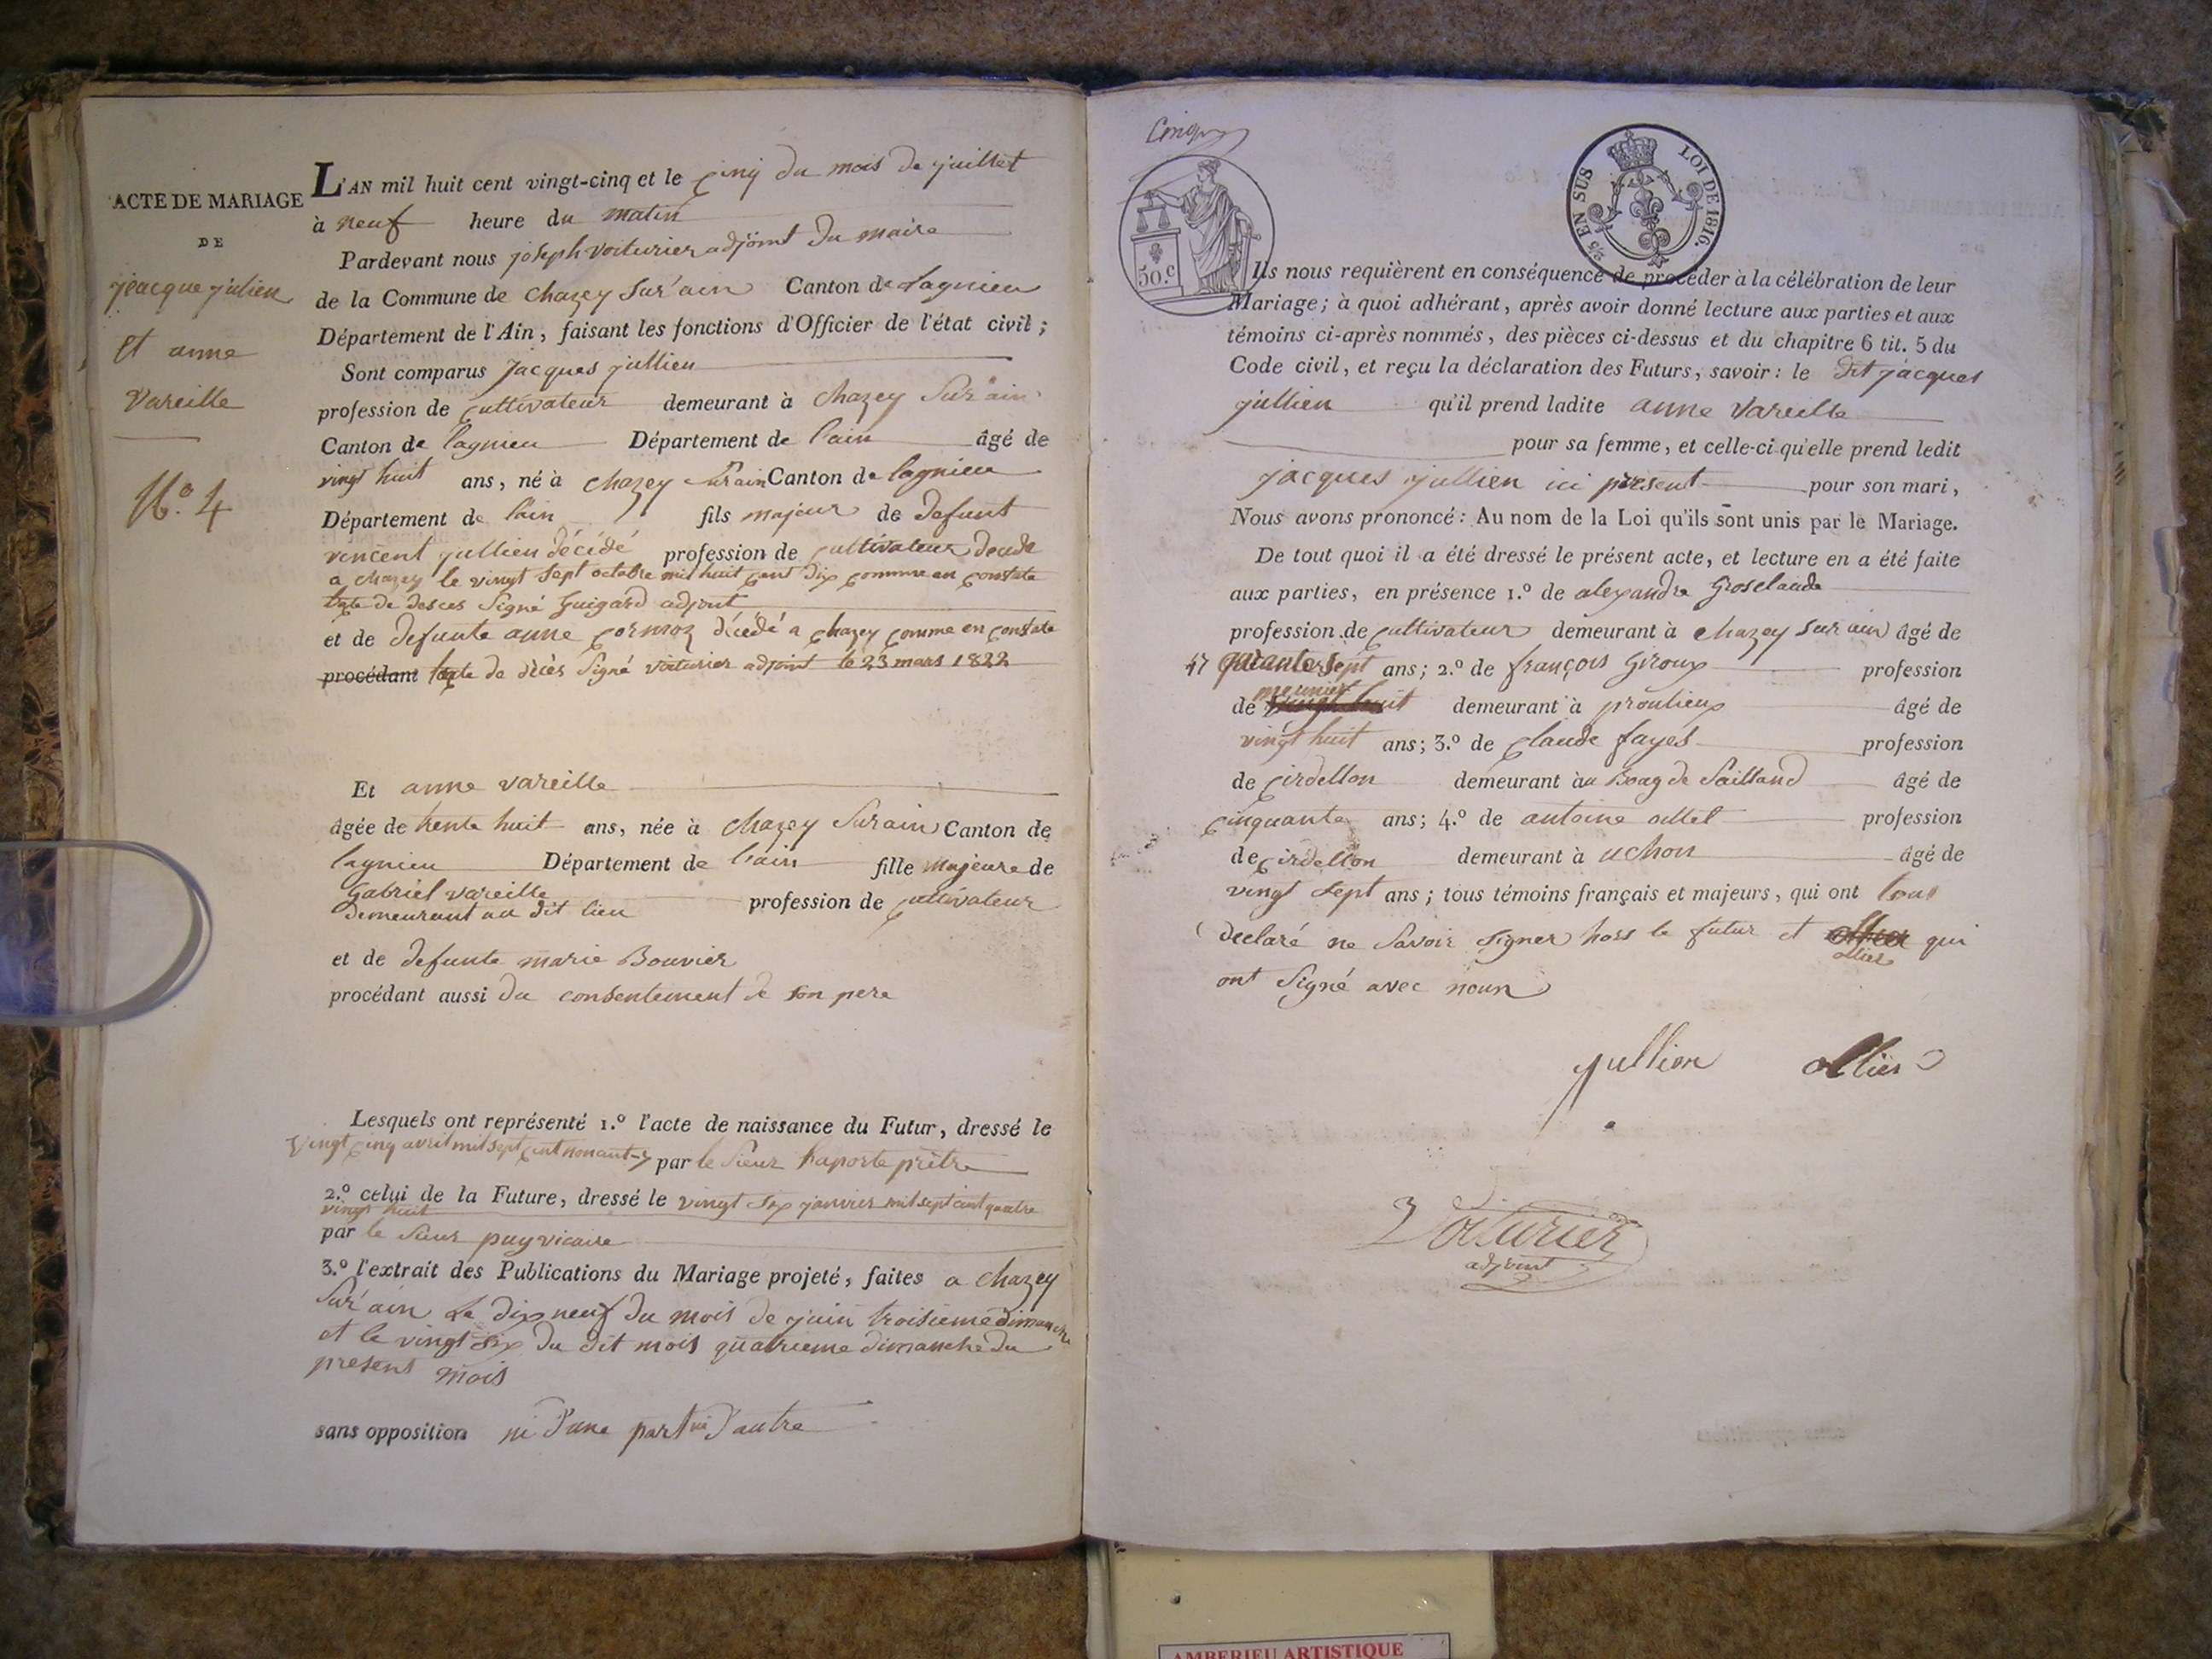 ACTE DE MARIAGE
DE
jeacque julien
et anne
vareille
N.o 4
L'AN mil huit cent vingt-cinq et le cinq du mois de juillet
à neuf heure du matin
Pardevant nous joseph voiturier adjoint du maire
de la Commune de chazey Sur'ain Canton de Lagnieu
Département de l'Ain, faisant les fonctions d'Officier de l'état civil;
Sont comparus Jacques jullien
profession de cultivateur demeurant à chazey Sur ain
Canton de lagnieu Département de l'ain âgé de
vingt huit ans, né à chazey Surain Canton de lagnieu
Département de l'ain fils majeur de defunt
vincent jullien décédé profession de cultivateur decede
a chazey le vingt Sept octobre mil huit cent dix comme en constate
l'acte de desces Signé Guigard adjout
et de defunte anne cormoz décédé a chazey comme en constate
procédant l'acte de décès Signé voiturier adjoint le 23 mars 1822
Et anne vareille
âgée de trente huit ans, née à chazey Surain Canton de
lagnieu Département de l'ain fille majeure de
Gabriel vareille
demeurant au dit lieu profession de cultivateur
et de defunte marie Bouvier
procédant aussi du consentement de son pere
Lesquels ont représenté 1.o l'acte de naissance du Futur, dressé le
vingt cinq avril mil sept cent nonant-7 par le Sieur Laporte prêtre
2.o celui de la Future, dressé le vingt six janvier mil sept cent quatre
vingt huit
par le Sieur puy vicaire
3.o l'extrait des Publications du Mariage projeté, faites a chazey
Sur'ain Le dix neuf du mois de juin troisieme dimanche
et le vingt six du dit mois quatrieme dimanche du
present mois
sans opposition ni d'une part ni d'autre
Cinq
50.c
2/5 EN SUS LOI DE 1816.
Ils nous requièrent en conséquence de procéder à la célébration de leur
Mariage; à quoi adhérant, après avoir donné lecture aux parties et aux
témoins ci-après nommés, des pièces ci-dessus et du chapitre 6 tit. 5 du
Code civil, et reçu la déclaration des Futurs, savoir: le dit jacques
jullien qu'il prend ladite anne vareille
pour sa femme, et celle-ci qu'elle prend ledit
jacques jullien ici présent pour son mari,
Nous avons prononcé: Au nom de la Loi qu'ils sont unis par le Mariage.
De tout quoi il a été dressé le présent acte, et lecture en a été faite
aux parties, en présence 1.o de alexandre Groselaude
profession de cultivateur demeurant à chazey Sur ain âgé de
47 quarante sept ans; 2.o de françois Giroux profession
meunier
de vingt huit demeurant à proulieux âgé de
vingt huit ans; 3.o de claude fayes profession
de cirdellon demeurant à au Bourg de Sailland âgé de
cinquante ans; 4.o de antoine profession
de cirdellon demeurant à uchon âgé de
vingt Sept ans; tous témoins français et majeurs, qui ont tous
declaré ne Savoir Signer hors le futur et qui
ollier
ont Signé avec nous
jullien ollier
Voiturier
adjoint
AMBERIEU ARTISTIQUE